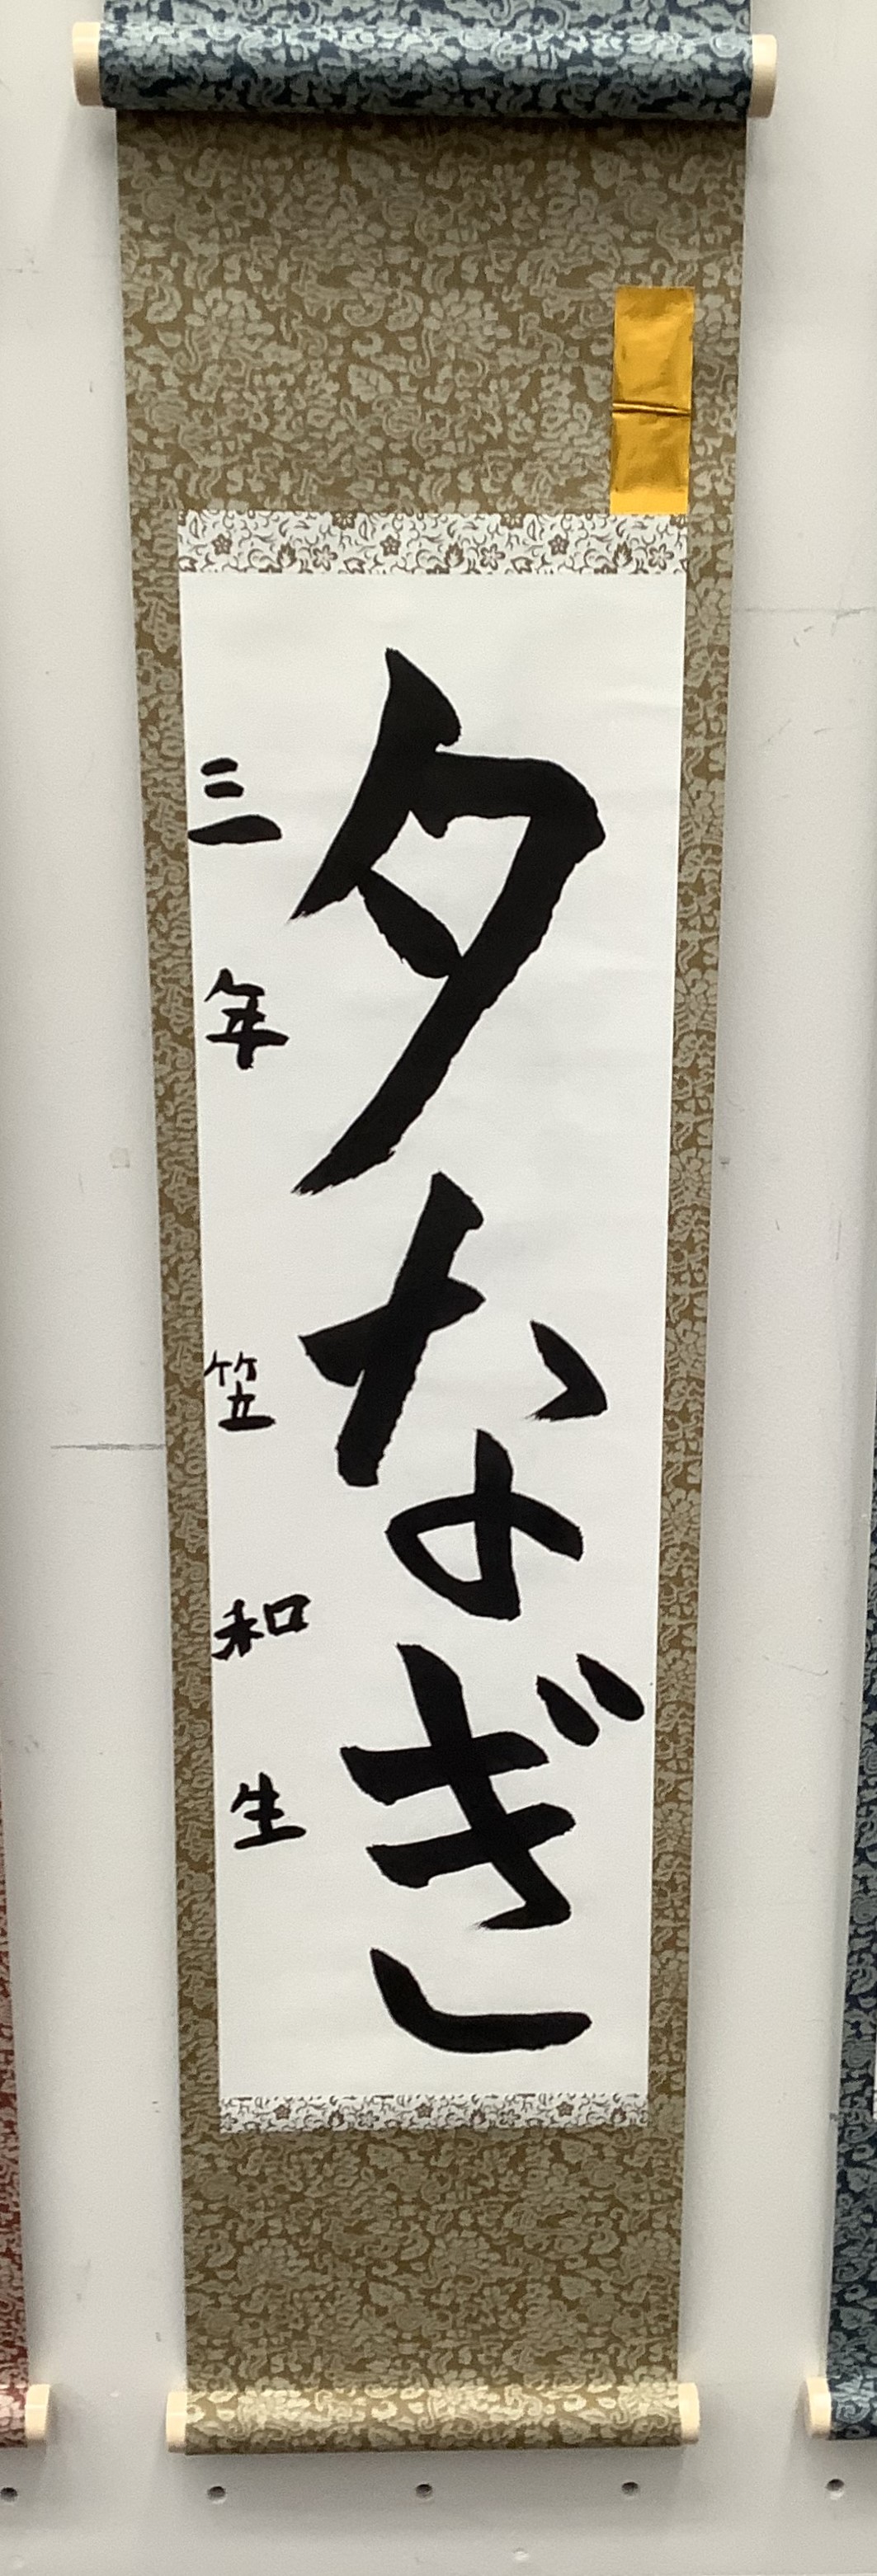 夕なぎ
三年 笠 和生